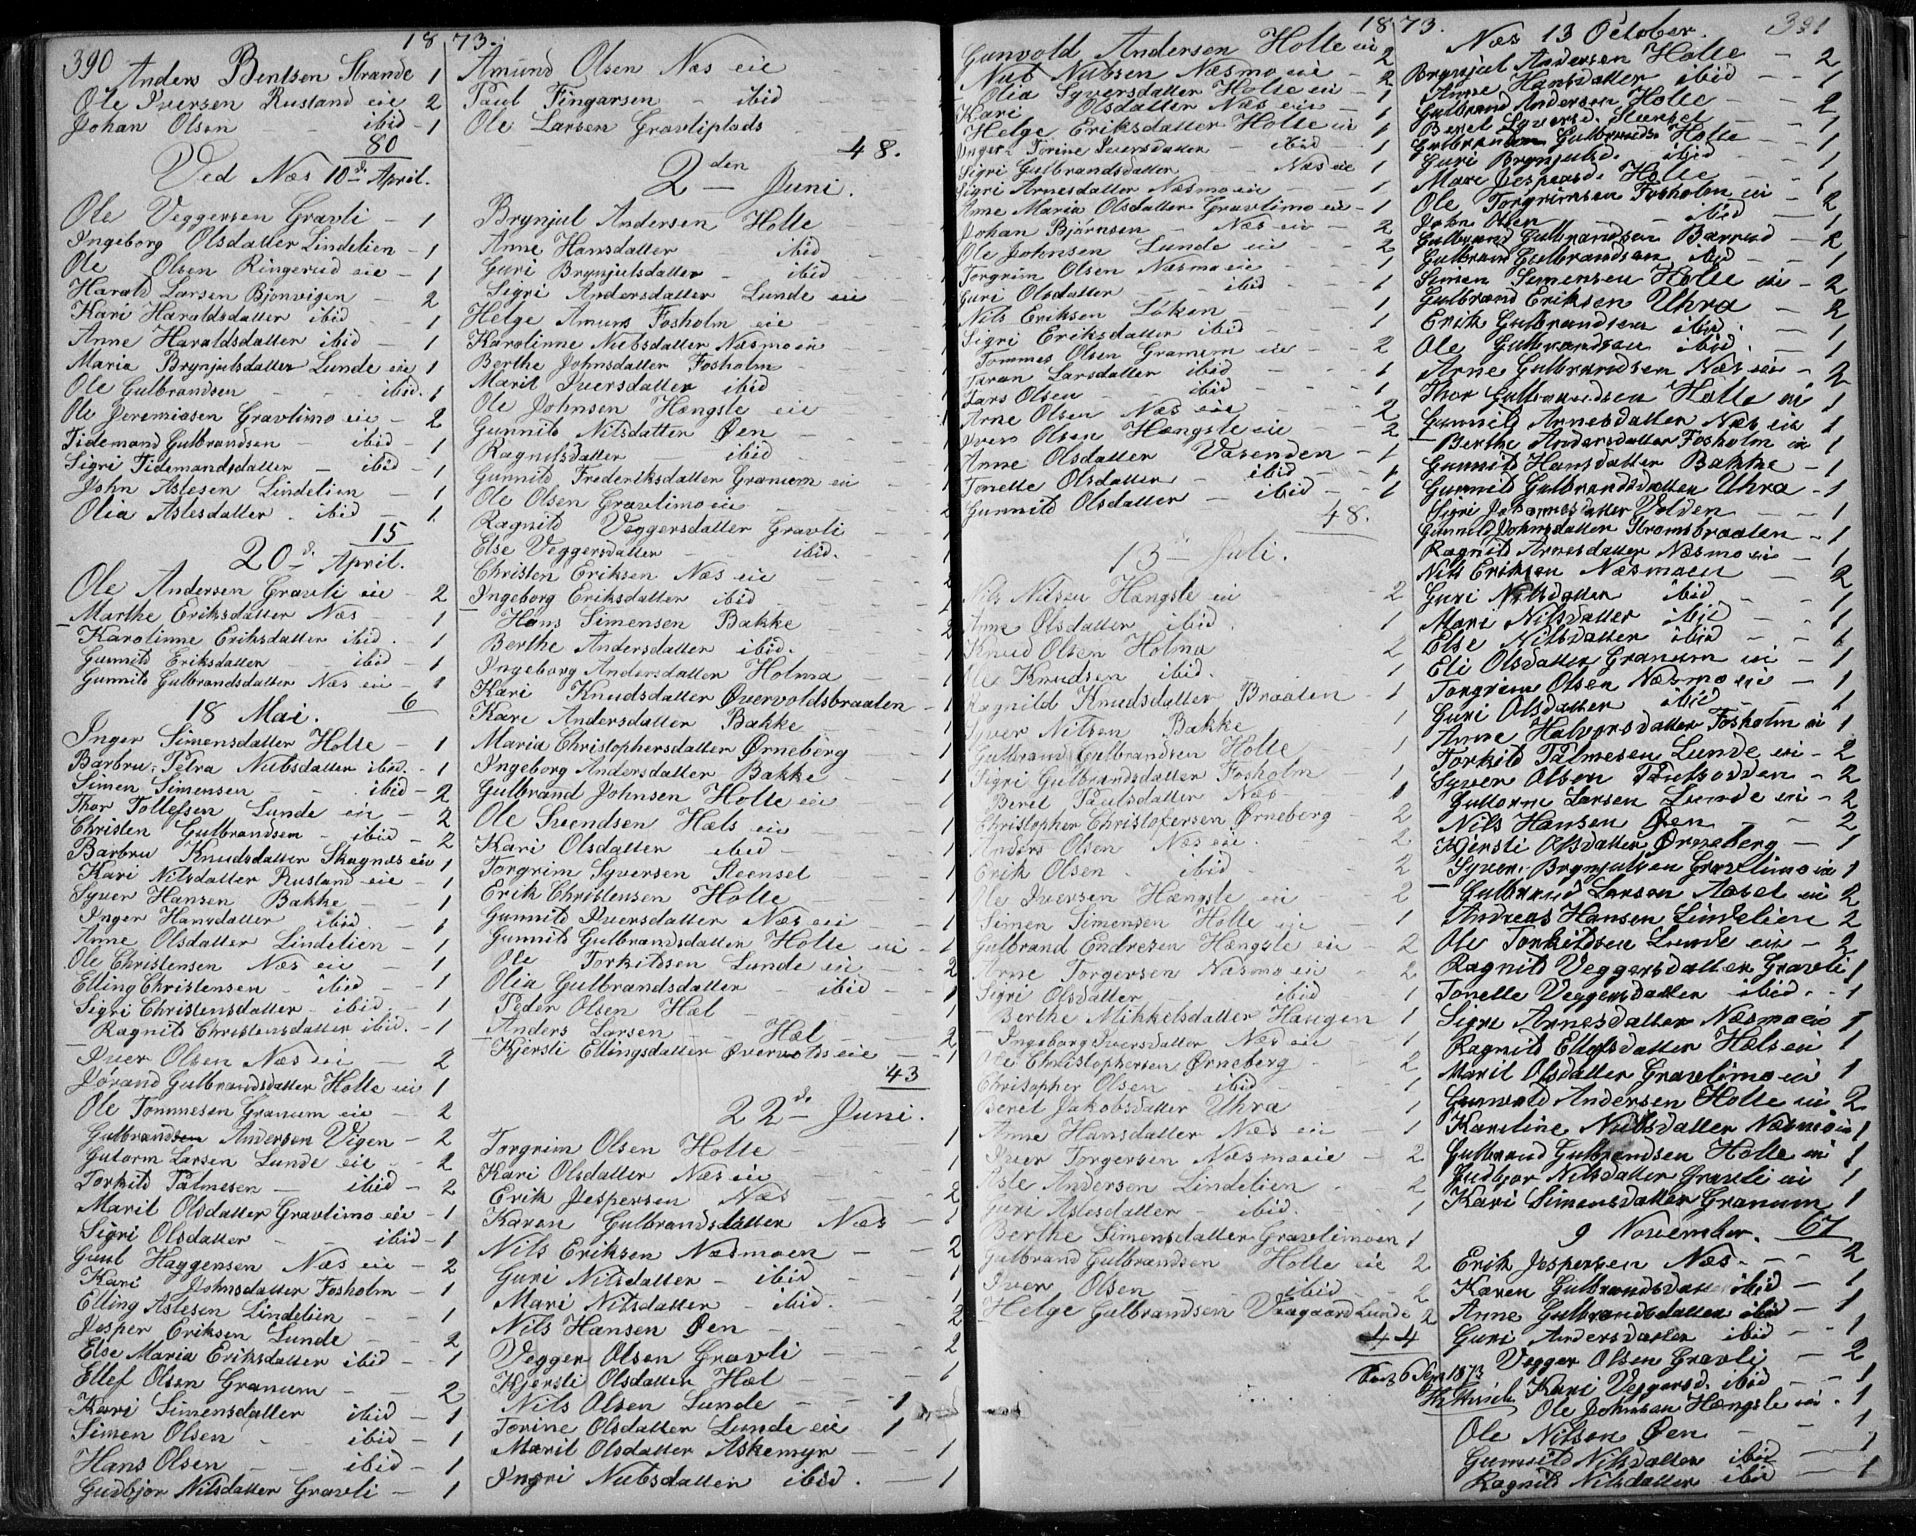 390
1873.
Anders Bentsen Strande 1
Ole Iversen Rustand eie 2
Johan Olsen - - ibid - 1
80
Ved Næs 10de April.
Ole Veggersen Gravli - 1
Ingeborg Olsdatter Lindelien - 1
Ole Olsen Ringerud eie - 1
Harald Larsen Bjonvigen - 2
Kari Haraldsdatter ibid - 1
Anne Haraldsdatter ibid - 1
Maria Brynjulsdatter Lunde eie 1
Ole Gulbrandsen - - ibid. 1
Ole Jeremiasen Gravlimo eie - 2
Tidemand Gulbrandsen - ibid - 1
Sigri Tidemandsdatter - ibid - 1
John Aslesen Lindelien - 1
Olia Aslesdatter - ibid - 1
15
20d. April.
Ole Andersen Gravli eie - 2
Marthe Eriksdatter Næs - - 1
Karolinne Eriksdatter ibid. 1
Gunnild Eriksdatter - ibid - 1
Gunnild Gulbrandsdatter Næs eie - 1
6
18 Mai.
Inger Simensdatter Holte - 1
Barbru Petra Nubsdatter ibid. - 1
Simen Simensen - - ibid - 2
Thor Tollefsen Lunde eie - 2
Christen Gulbrandsen - ibid - 2
Barbru Knudsdatter Skagnæs eie 1
Kari Nilsdatter Rustand eie - 1
Syver Hansen Bakke - - 1
Inger Hansdatter ibid. 1
Anne Olsdatter Lindelien - 1
Ole Christensen Næs eie - 1
Elling Christensen - ibid - 1
Sigri Christensdatter - ibid - 1
Ragnild Christensdatter ibid. - 1
Iver Olsen Næs eie - 2
Jørand Gulbrandsdatter Holte eie 1
Ole Tommesen Granum eie - 2
Gulbrandsen Andersen Vigen - 2
Gutorm Larsen Lunde eie - 2
Torkild Palmesen - ibid - 2
Marit Olsdatter Gravlimo eie - 1
Sigri Olsdatter - - ibid - 1
Guul Haggensen Næs eie - 2
Kari Johnsdatter Fosholm - 1
Elling Aslesen Lindelien - - 1
Jesper Eriksen Lunde - - 2
Else Maria Eriksdatter ibid - 1
Ellef Olsen Granum - - 2
Kari Simensdatter ibid - 1
Simen Olsen - ibid - 1
Hans Olsen - - ibid - 1
Gudbjør Nilsdatter Gravli - 1
Amund Olsen Næs eie
Paul Fingarsen - ibid
Ole Larsen Gravliplads
48.
2den Juni.
Brynjul Andersen Holte
Anne Hansdatter ibid
Guri Brynjulsdatter - ibid
Sigri Andersdatter Lunde eie
Helge Amuns Fosholm eie
Karolinne Nubsdatter Næsmo eie
Berthe Johnsdatter Fosholm
Marit Iversdatter ibid
Ole Johnsen Hængsle eie
Gunnild Nilsdatter Øen
Ragnilsdatter - ibid
Gunnild Frederiksdatter Granum eie
Ole Olsen Gravlimo eie
Ragnild Veggersdatter Gravli
Else Veggersdatter - ibid.
Christen Eriksen Næs eie
Ingeborg Eriksdatter ibid
Hans Simensen Bakke
Berthe Andersdatter ibid.
Ingeborg Andersdatter Holma
Kari Knudsdatter Øvervoldsbraaten - 1
Kari Andersdatter Bakke
Maria Christophersdatter Ørneberg - 1
Ingeborg Andersdatter Bakke - 1
Gulbrand Johnsen Holte eie
Ole Svendsen Hæls eie - 1
Kari Olsdatter ibid - 1
Torgrim Syversen Steensel - 1
Erik Christensen Holte - 1
Gunnild Iversdatter Næs eie - 1
Gunnild Gulbrandsdatter Holte eie - 1
Ole Torkildsen Lunde eie - 2
Olia Gulbrandsdatter - ibid - 1
Peder Olsen Hæl - 1
Anders Larsen - Hæl - 2
Kjersti Ellingsdatter Øvervolds eie - 1
43
22de Juni.
Torgrim Olsen Holte - 1
Kari Olsdatter Næs eie - 1
Erik Jespersen Næs - 2
Karen Gulbrandsdatter Næs - 1
Nils Eriksen Næsmoen - - 2
Guri Nilsdatter - ibid - - 1
Mari Nilsdatter - ibid. - 1
Nils Hansen Øen - - 2
Vegger Olsen Gravli - - 2
Kjersti Olsdatter Hæl - - 1
Nils Olsen Lunde - - 1
Torine Olsdatter Lunde eie 1
Marit Olsdatter Askemyr - - 1
Ingri Nubsdatter ibid. - 1
391
1873.
Gunvold Andersen Holte eie 2
Nub Nubsen Næsmo eie - 2
Olia Syversdatter Holte eie - 1
Kari Olsdatter Næs eie - 1
Helge Eriksdatter Holte eie 1
Inger Torine Iversdatter - ibid - 1
Sigri Gulbrandsdatter Næs eie 1
Sigri Arnesdatter Næsmo eie - 1
Anne Maria Olsdatter Gravlimo eie - 1
Johan Bjørnsen - Næs eie - 2
Ole Johnsen Lunde eie - 2
Torgrim Olsen Næsmo eie 1
Guri Olsdatter - - ibid - 1
Nils Eriksen Løken - - 1
Sigri Eriksdatter ibid - 1
Tommes Olsen Granum eie - 2
Taran Larsdatter ibid - 1
Lars Olsen - ibid - 1
Arne Olsen Næs eie - 2
Iver Olsen Hængsle eie - 2
Anne Olsdatter Vasenden - 1
Tonette Olsdatter - ibid - 1
Gunnild Olsdatter - ibid - 1
48.
13 Juli.
Nils Nilsen Hængsle eie 2
Anne Olsdatter ibid. 1
Knud Olsen Holma 2
Ole Knudsen ibid. 1
Ragnild Knudsdatter Braaten 1
Syver Nilsen Bakke 1
Gulbrand Gulbrandsen Holte 1
Sigri Gulbrandsdatter Fosholm - 1
Berit Paulsdatter Næs - 1
Christopher Christophersen Ørneberg - 2
Anders Olsen Næs eie. 2
Erik Olsen - ibid - 2
Ole Iversen Hængsle eie 2
Simen Simensen Holte eie - 1
Gulbrand Endresen Hængsle eie - 2
Arne Torgersen Næsmo eie - 2
Sigri Olsdatter ibid 1
Berthe Mikkelsdatter Haugen 1
Ingeborg Iversdatter Næs eie - 1
Ole Christophersen Ørneberg - 2
Christopher Olsen - ibid - 1
Berit Jakobsdatter Uhra 1
Anne Hansdatter Næs eie - 1
Iver Torgersen Næsmoeie - 2
Asle Andersen Lindelien - 2
Guri Aslesdatter - ibid. 1
Berthe Simensdatter Gravlimoen 1
Gulbrand Gulbrandsen Holte eie 2
Iver Olsen - ibid - 2
Helge Gulbrandsen Vaagaard Lunde 2
44
1873
Næs 13 October.
Brynjul Andersen Holte - 2
Anne Hansdatter ibid - 1
Gulbrand Andersen Holte - 2
Beret Syversd. Stensel - 1
Gulbrandsen Gulbrands Holte - 1
Guri Brynjulsd. ibid - 1
Mari Jespersd. Holte - 1
Ole Torgrimsen Fosholm eie - 2
John Olsen - - ibid - 1
Gulbrand Gulbrandsen Bærrud - 2
Gulbrand Gulbrandsen ibid - 1
Simen Simensen Holte eie - 2
Gulbrand Eriksen Uhra - 2
Erik Gulbrandsen ibid. - 1
Ole Gulbrandsen ibid. - 1
Arne Gulbrandsen Næs eie - 2
Thor Gulbrandsen Holte ei 1
Gunnild Arnesdatter Næs eie 1
Berthe Andersdatter Fosholm ei 1
Gunnild Hansdatter Bakke - 1
Gunnild Gulbrandsdatter Uhra - 1
Sigri Johannesdatter Volden - - 1
Gunnild Johnsdatter Strømsbraaten - 1
Ragnild Arnesdatter Næsmo eie - 1
Nils Eriksen Næsmoen - 2
Guri Nilsdatter ibid - 1
Mari Nilsdatter ibid - 1
Else Nilsdatter ibid - - 1
Eli Olsdatter Granum eie - 1
Torgrim Olsen Næsmo eie - 1
Guri Olsdatter ibid - 1
Anne Halvorsdatter Fosholm ei 1
Torkild Palmesen Lunde eie - 2
Syver Olsen Tufsodden - 2
Guttorm Larsen Lunde eie - 2
Nils Hansen Øen - - 2
Kjersti Olsdatter Ørneberg - 1
Syver Brynjulsen Gravlimo ei 1
Gulbrand Larsen Aaset ei 2
Andreas Hansen Lindelien 2
Ole Torkildsen Lunde eie - 2
Ragnild Veggersdatter Gravli 1
Tonette Veggersdatter ibid. - 1
Sigri Arnesdatter Næsmoeie 1
Ragnild Ellefsdatter Hæls ei 1
Marit Olsdatter Gravlimo ei 1
Gunvold Andersen Holte ei 2
Karoline Nubsdatter Næsmo ei 1
Gulbrand Gulbrandsen Holte ei 1
Gudbjør Nilsdatter Gravli ei 1
Kari Simensdatter Granum 1
67
9 November.
Erik Jespersen Næs - - 2
Karen Gulbrandsdatter ibid - 1
Anne Gulbrandsdatter ibid - 1
Guri Andersdatter ibid - - 1
Vegger Olsen Gravli - 2
Kari Veggersd. ibid - - 1
Ole Johnsen Hængsle ei. 1
Ole Nilsen Øen - - 1
Gunnild Nilsdatter ibid - 1
Ragnild Nilsdatter ibid - 1